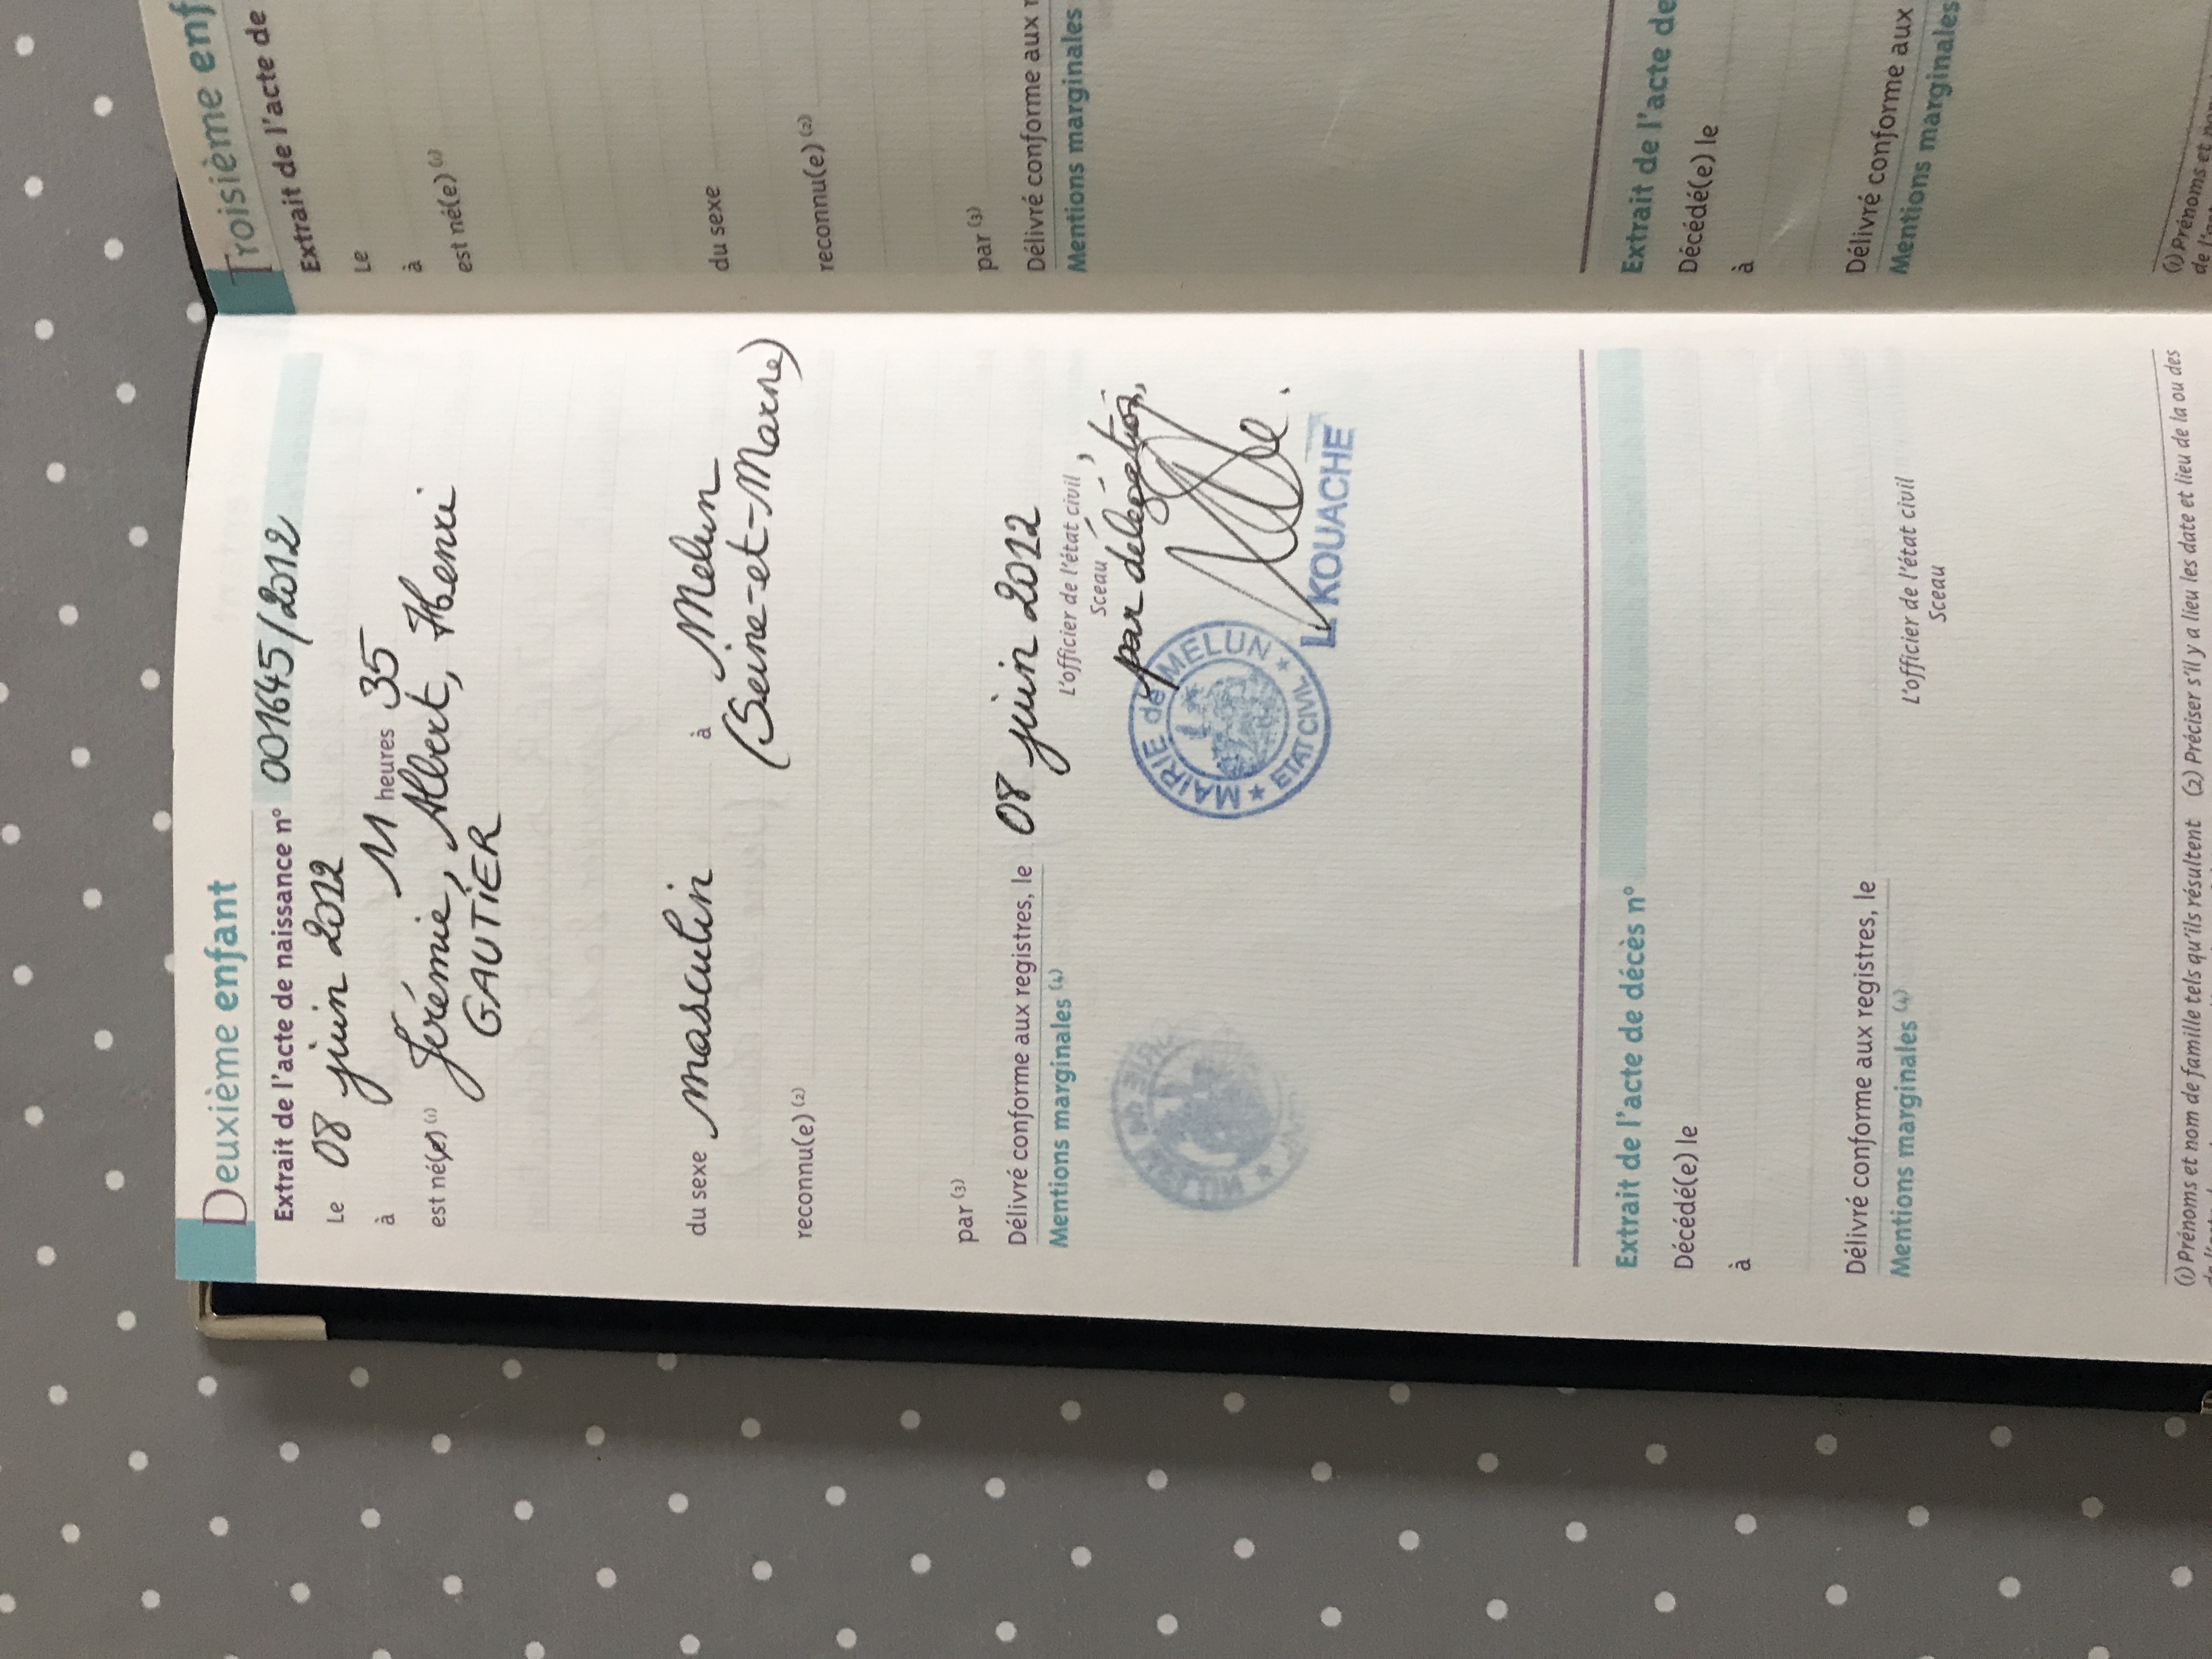 Deuxième enfant
Extrait de l'acte de naissance n° 001645/2012
Le 08 juin 2012
à 11 heures 35
est né(e) (1) Jérémie, Albert, Henri
GAUTIER
du sexe masculin à Melun
(Seine-et-Marne)
reconnu(e) (2)
par (3)
Délivré conforme aux registres, le 08 juin 2012
Mentions marginales (4)
L'officier de l'état civil
Sceau
par délégation,
MAIRIE de MELUN
ETAT CIVIL
L. KOUACHE
Extrait de l'acte de décès n°
Décédé(e) le
à
Délivré conforme aux registres, le
Mentions marginales (4)
L'officier de l'état civil
Sceau
(1) Prénoms et nom de famille tels qu'ils résultent (2) Préciser s'il y a lieu les date et lieu de la ou des
Troisième enf
Extrait de l'acte de
Le
à
est né(e) (1)
du sexe
reconnu(e) (2)
par (3)
Délivré conforme aux r
Mentions marginales
Extrait de l'acte de
Décédé(e) le
à
Délivré conforme aux
Mentions marginales
(1) Prénoms et nom